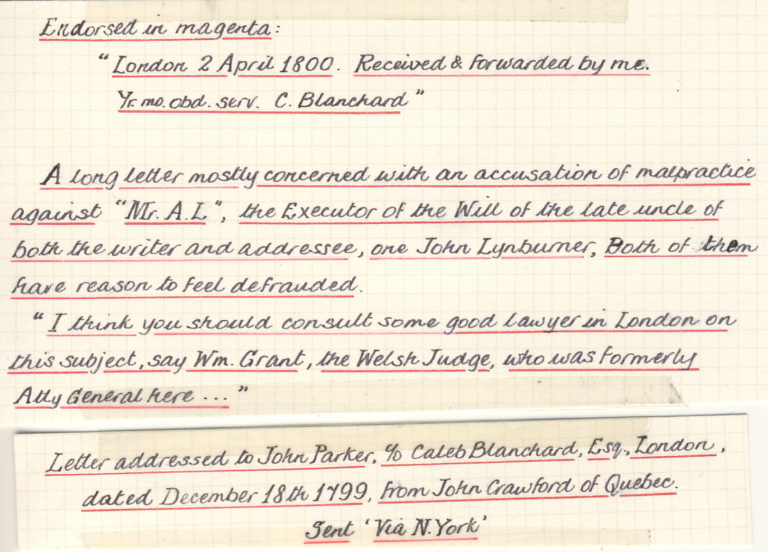 Endorsed in magenta:
"London 2 April 1800. Received & forwarded by me.
Yr. mo. obd. serv. C. Blanchard"
A long letter mostly concerned with an accusation of malpractice
against "Mr. A.L", the Executor of the Will of the late uncle of
both the writer and addressee, one John Lynburner, Both of them
have reason to feel defrauded.
"I think you should consult some good lawyer in London on
this subject, say Wm. Grant, the Welsh Judge, who was formerly
Atty General here ..."
Letter addressed to John Parker, c/o Caleb Blanchard, Esq., London,
dated December 18th 1799, from John Crawford of Quebec.
Sent 'Via N. York'